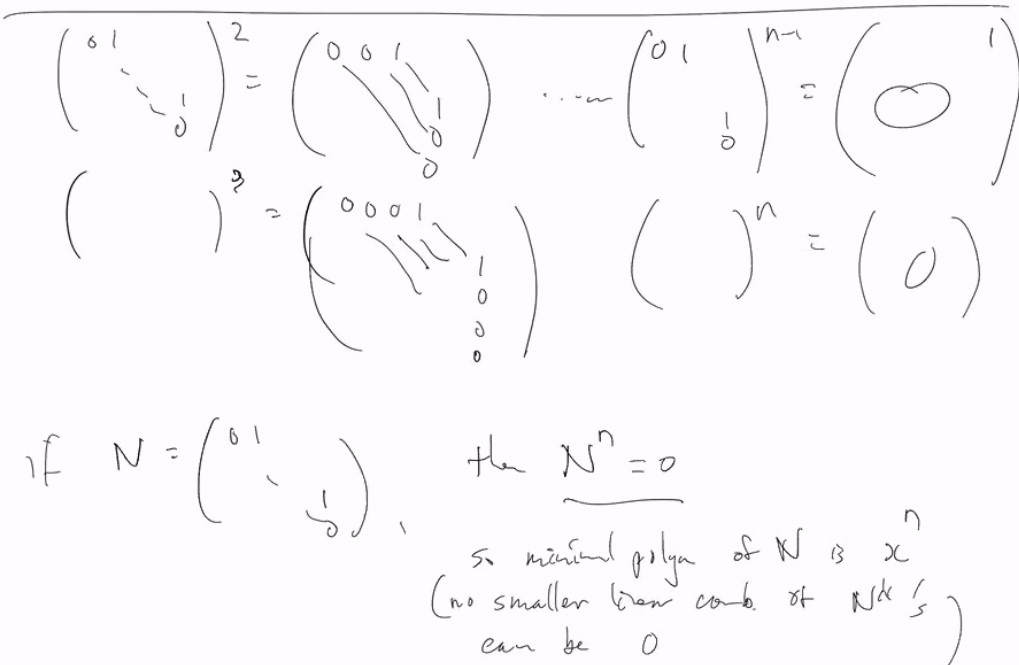 ( 0 1 1 0 )^2 = ( 0 0 1 1 0 0 ) ..... ( 0 1 1 0 )^{n-1} = ( 0 1 )
( )^3 = ( 0 0 0 1 1 0 0 0 ) ( )^n = ( 0 )
if N = ( 0 1 1 0 ), then N^n = 0
so minimal polyn of N is x^n
(no smaller linear comb. of N^k's
can be 0 )